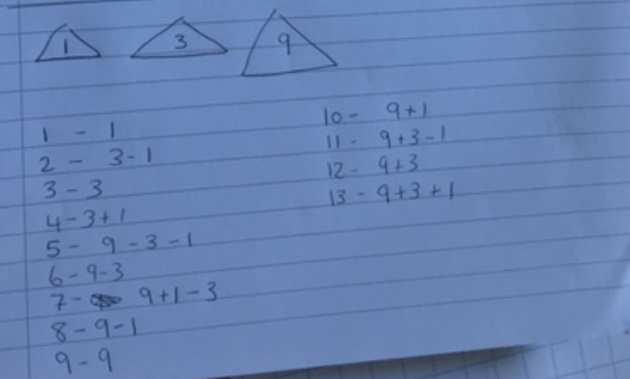 1 3 9
1 - 1
2 - 3-1
3 - 3
4 - 3+1
5 - 9-3-1
6 - 9-3
7 - 9+1-3
8 - 9-1
9 - 9
10 - 9+1
11 - 9+3-1
12 - 9+3
13 - 9+3+1